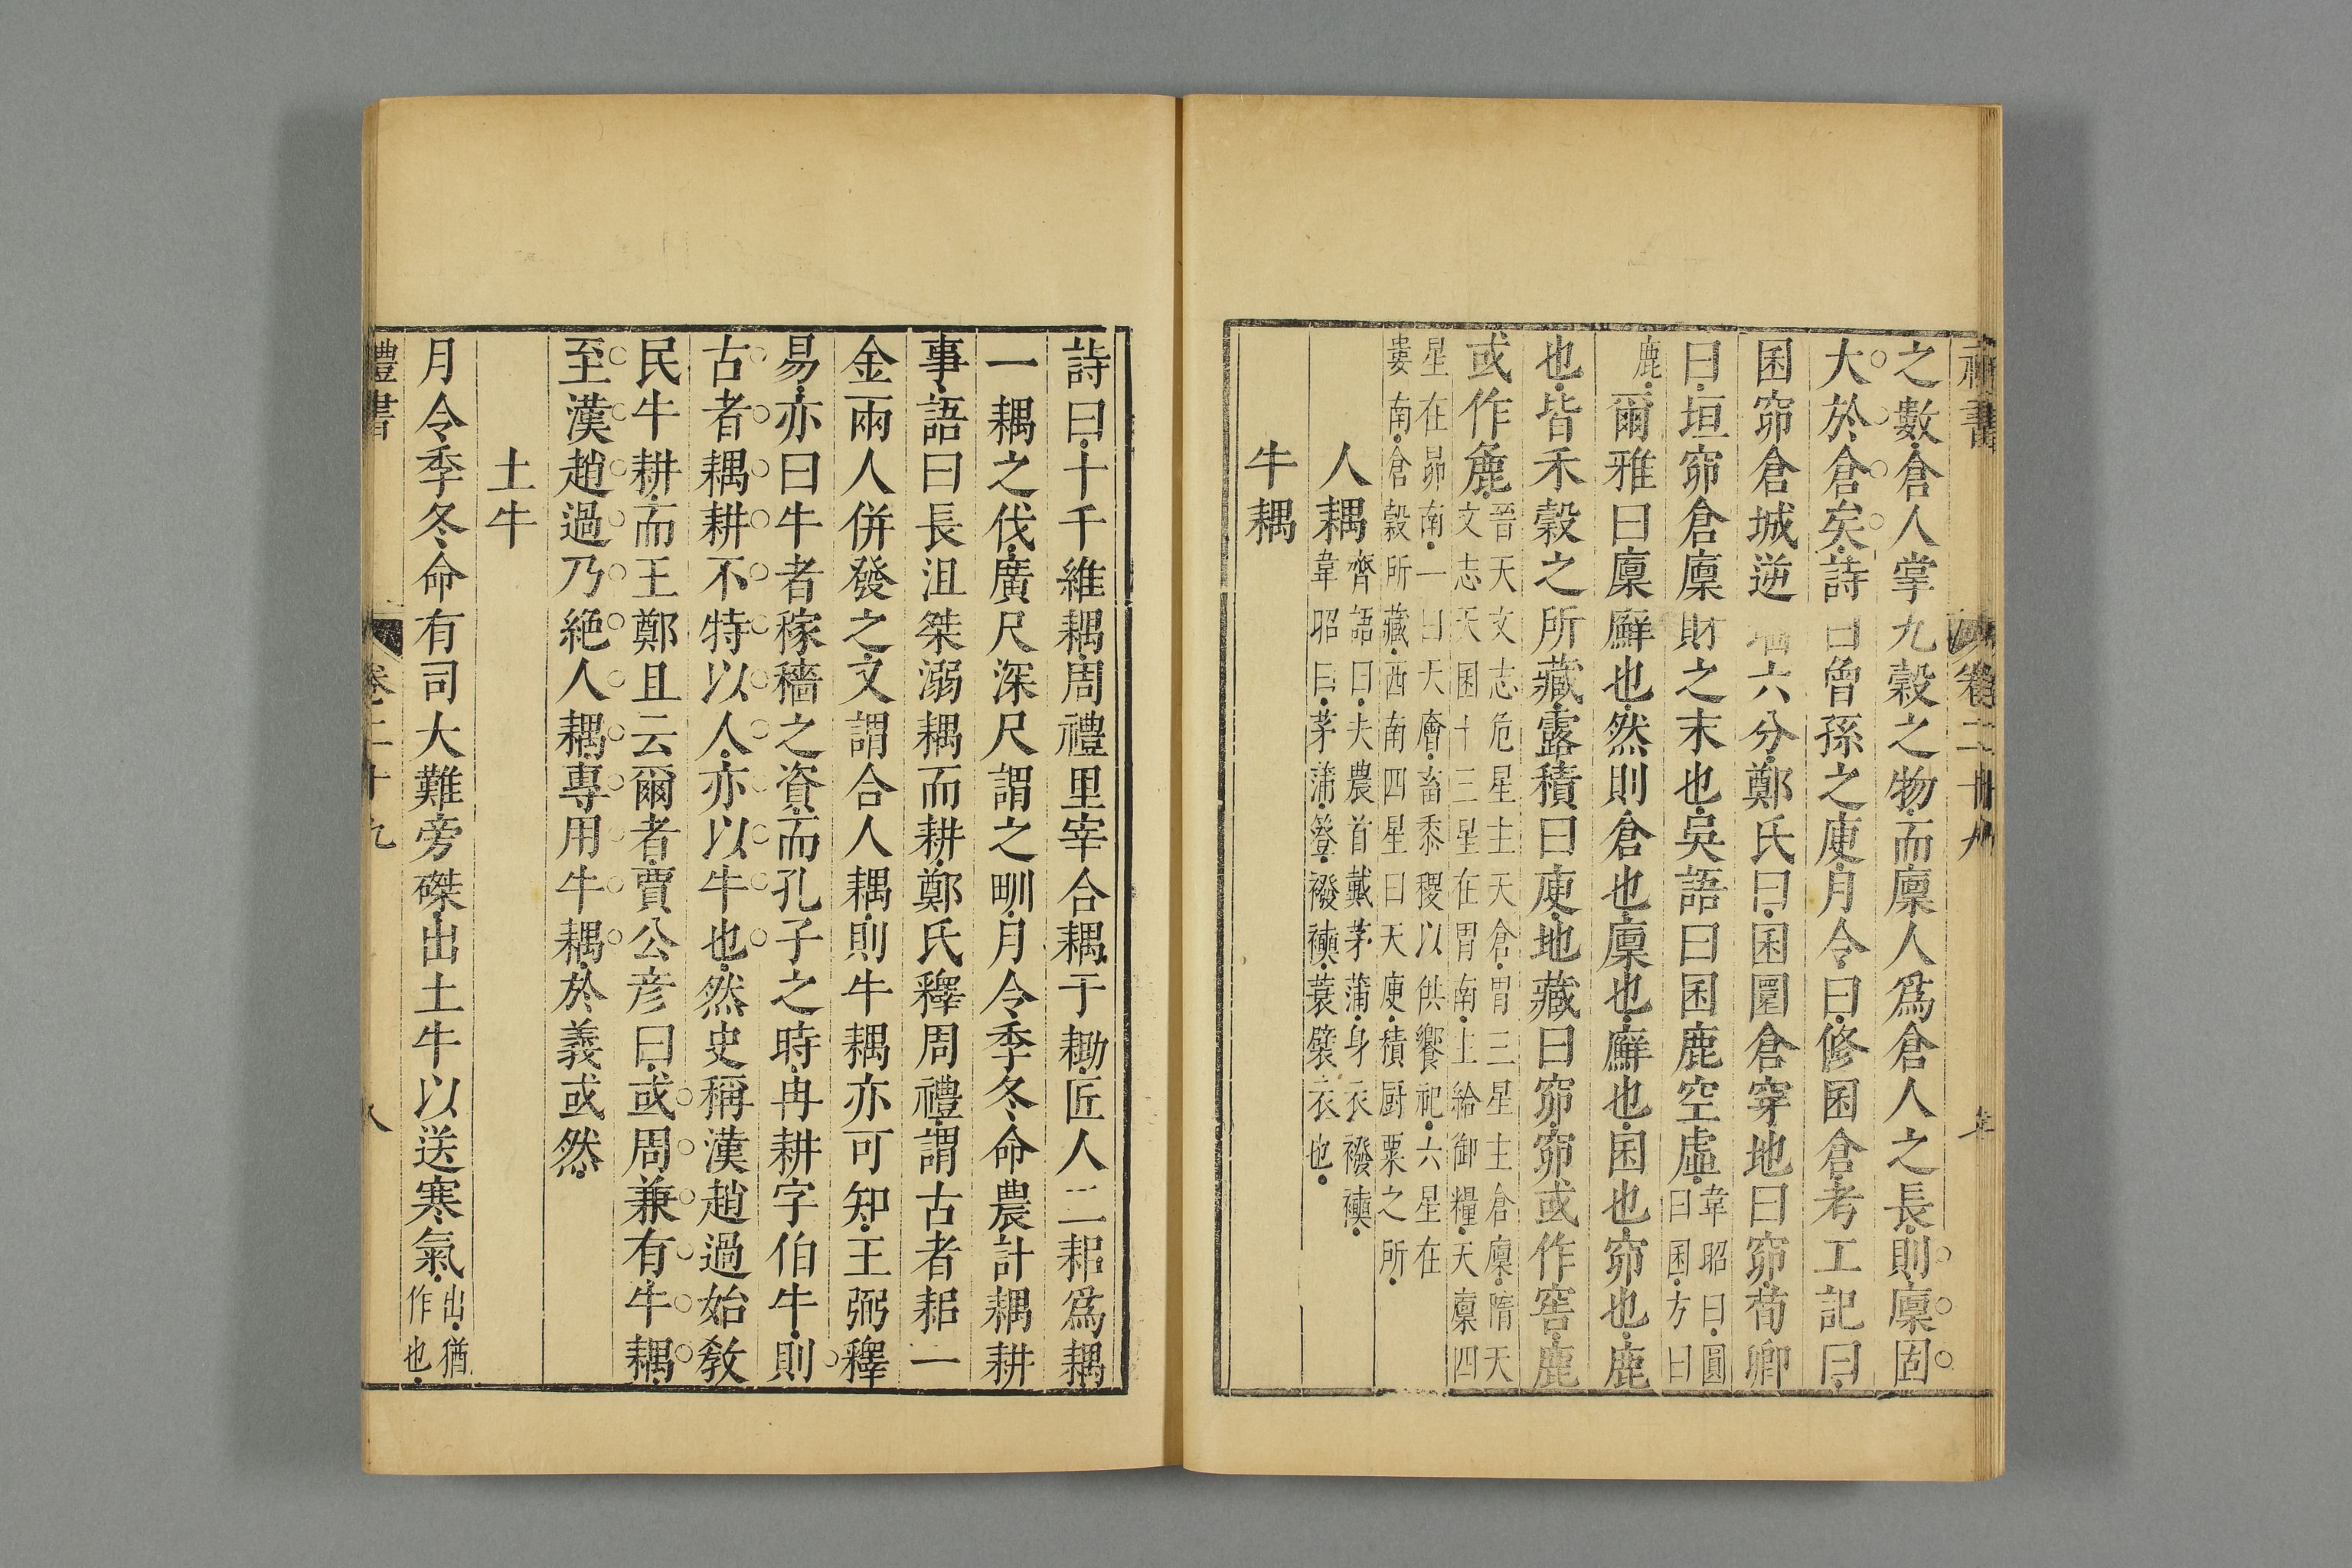 禮書
卷二十九
之數倉人掌九穀之物而廩人爲倉人之長則廩固
大於倉矣詩曰曾孫之庾月令曰修囷倉考工記曰
囷窌倉城逆牆六分鄭氏曰囷圜倉穿地曰窌荀卿
曰垣窌倉廩財之末也吳語曰囷鹿空虛韋昭曰圓曰囷方曰
鹿爾雅曰廩廯也然則倉也廩也廯也囷也窌也鹿
也皆禾穀之所藏露積曰庾地藏曰窌窌或作窖鹿
或作麁晉天文志危星主天倉胃三星主倉廩隋天
文志天囷十三星在胃南主給御糧天廩四
星在昴南一曰天廥畜黍稷以供饗祀六星在
婁南倉穀所藏西南四星曰天庾積厨粟之所
人耦齊語曰夫農首戴茅蒲身衣襏襫
韋昭曰茅蒲簦襏襫蓑襞衣也
牛耦
詩曰十千維耦周禮里宰合耦于耡匠人二耜爲耦
一耦之伐廣尺深尺謂之甽月令季冬命農計耦耕
事語曰長沮桀溺耦而耕鄭氏釋周禮謂古者耜一
金兩人併發之文謂合人耦則牛耦亦可知王弼釋
易亦曰牛者稼穡之資而孔子之時冉耕字伯牛則
古者耦耕不特以人亦以牛也然史稱漢趙過始敎
民牛耕而王鄭且云爾者賈公彦曰或周兼有牛耦
至漢趙過乃絕人耦專用牛耦於義或然
土牛
月令季冬命有司大難旁磔出土牛以送寒氣出猶
作也
禮書
卷二十九
八